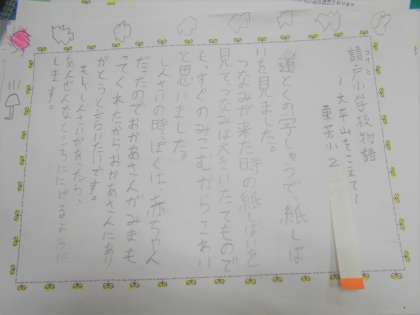 請戸小学校物語
〜大平山をこえて〜
東芳小2
道とくの学しゅうで、紙しば
いを見ました。
つなみが来た時の紙しばいを
見てつなみは大きいたてもので
も、すぐのみこむからこわい
と思いました。
しんさいの時ぼくは、赤ちゃん
だったのでおかあさんがみまも
ってくれたからおかあさんにあり
がとうと言いたいです。
もし、しんさいがあったら、
あんぜんなところににげるように
します。